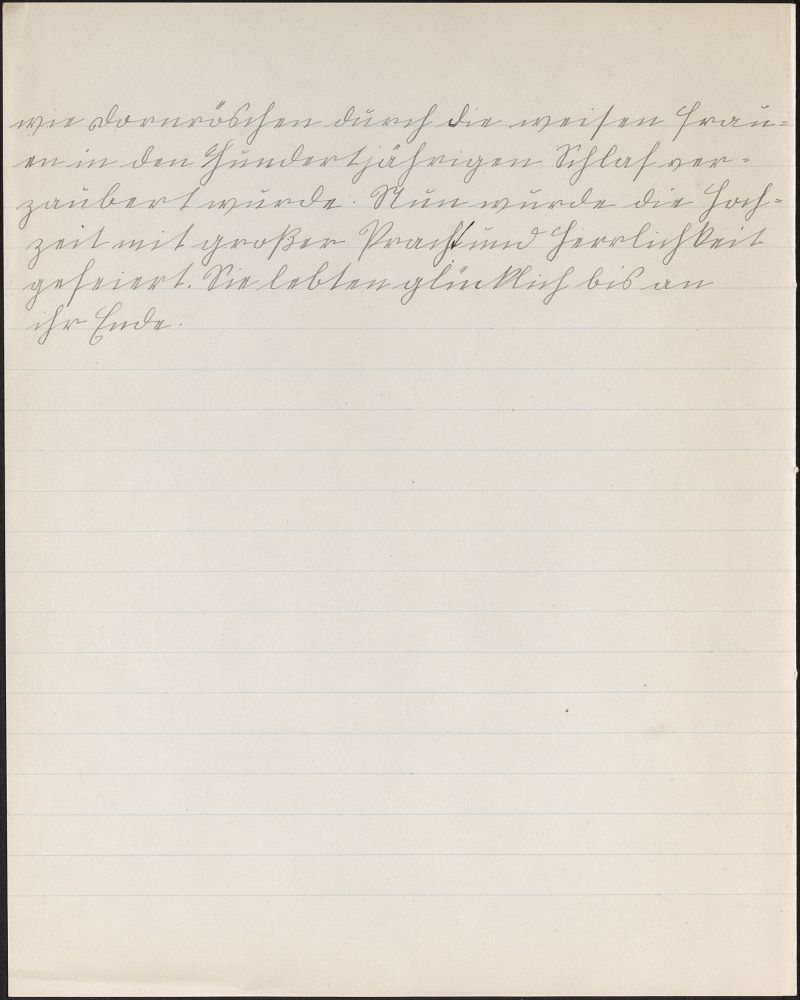 wie Dornröschen durch die weisen Frau-
en in den Hundertjährigen Schlaf ver-
zaubert wurde. Nun wurde die Hoch-
zeit mit großer Pracht und Herrlichkeit
gefeiert. Sie lebten glücklich bis an
ihr Ende.